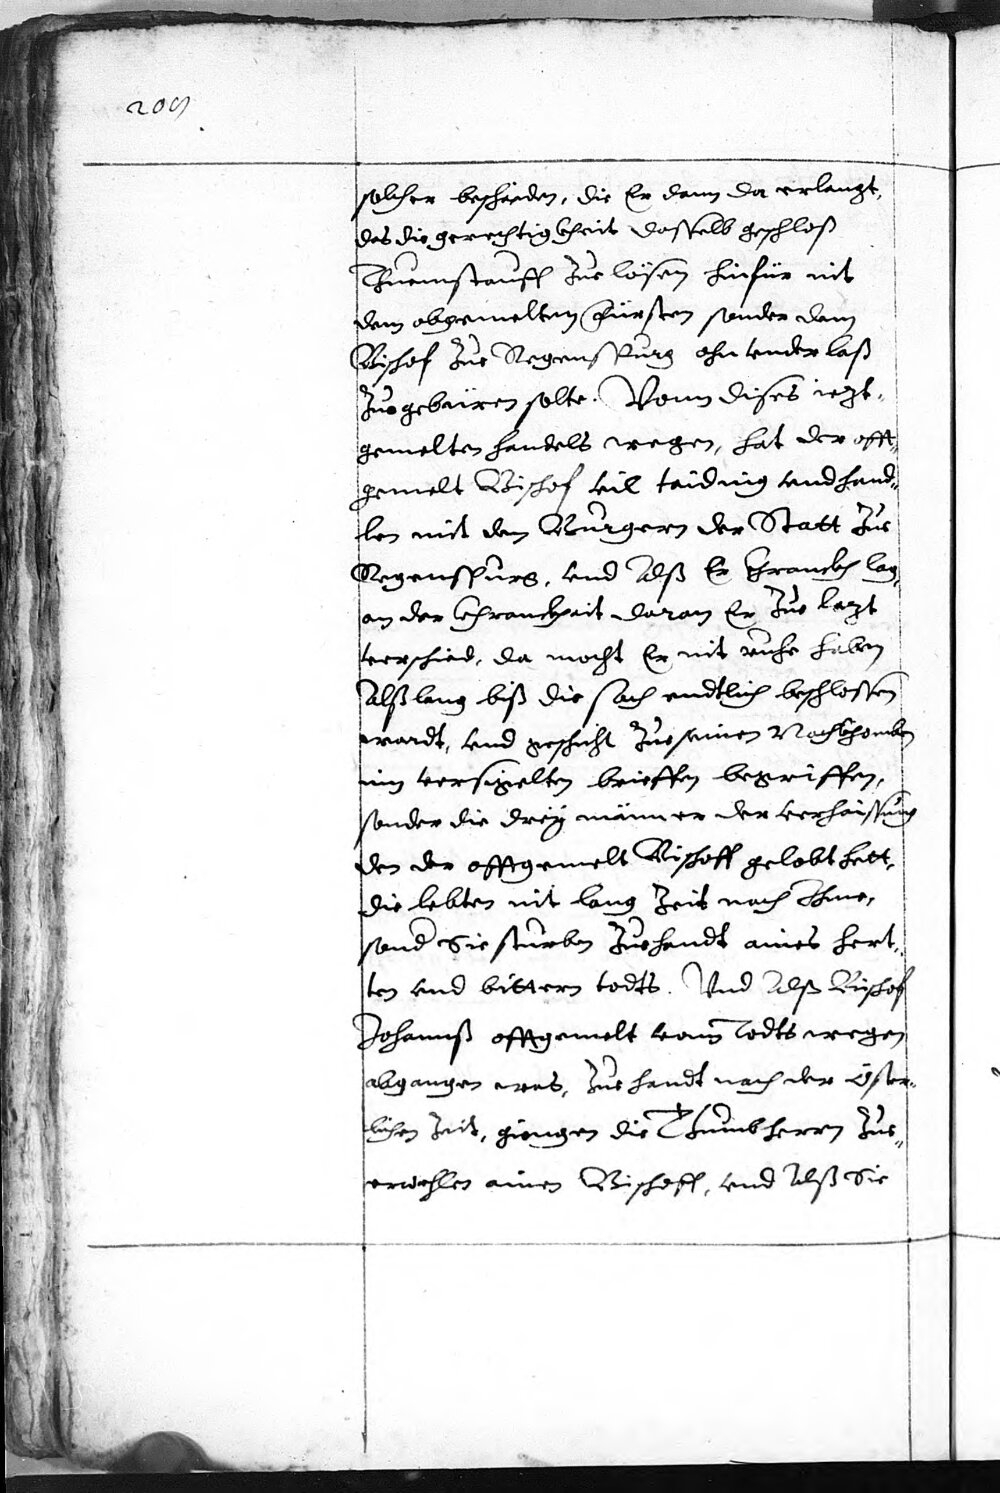 209
solcher beschaiden, die Er dann da erlangt,
das die gerechtigkheit dasselb geschloß
Thuemstauff Zue lösen hinfür nit
dem obgemelten Fürsten sonder dem
Bischof Zue Regenspurg ohn underlaß
Zuegebüren solte. Vonn dises iezt-
gemelten handels wegen, hat der offt-
gemelt Bischof vil taiding und hand-
len mit den Burgern der Statt Zue
Regenspurg, und Alß Er Kranckh lag,
an der Khranckheit daran Er Zue lezt
verschied, da mocht Er nit ruhe haben
Alß lang biß die sach endtlich beschlossen
wardt, und geschicht Zue seinen Nachkhomben
inn versigelten brieffen begriffen,
sonder die dreÿ männer der verhaissung
den der offtgemelt Bischoff gelobt hett,
die lebten nit lang Zeit nach Ihme,
sond Sie sturben Zuehandt aines hert-
ten und bittern todts. Und Alß Bischof
Johannß offtgemelt vonn Todts wegen
abgangen was, Zuehandt nach der Öster-
lichen Zeit, giengen die Thumbherrn Zue-
erwehlen ainen Bischoff, und Alß Sie